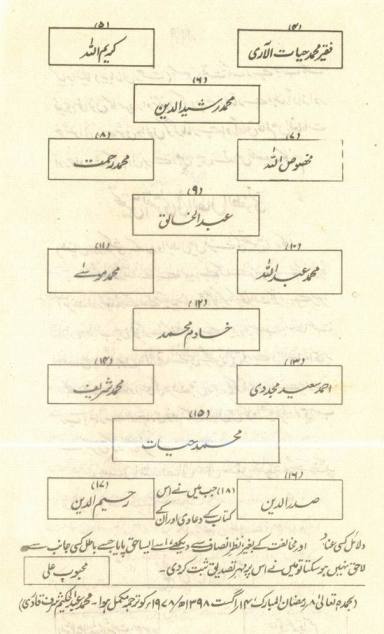 (۴)
فقیر محمد حیات الآری
(۵)
کریم اللہ
(۶)
محمد رشید الدین
(۷)
مخصوص اللہ
(۸)
محمد رحمت
(۹)
عبد الخالق
(۱۰)
محمد عبد اللہ
(۱۱)
محمد موسےٰ
(۱۲)
خادم محمد
(۱۳)
احمد سعید مجددی
(۱۴)
محمد شریف
(۱۵)
محمد حیات
(۱۶)
صدر الدین
(۱۷)
رحیم الدین
(۱۸) جب میں نے اس
کتاب کے دعاوی اور ان کے
دلائل کسی عناد اور مخالفت کے بغیر نظر انصاف سے دیکھے اسے ایسا حق پایا جسے باطل کسی جانب سے
لاحق نہیں ہو سکتا تو میں نے اس پر مہر تصدیق ثبت کر دی۔
محبوب علی
(بحمدہ تعالیٰ ۸ رمضان المبارک ۱۴ اگست ۱۳۹۸ھ/۱۹۷۸ء کو ترجمہ مکمل ہوا۔ محمد عبد الحکیم شرف قادری)